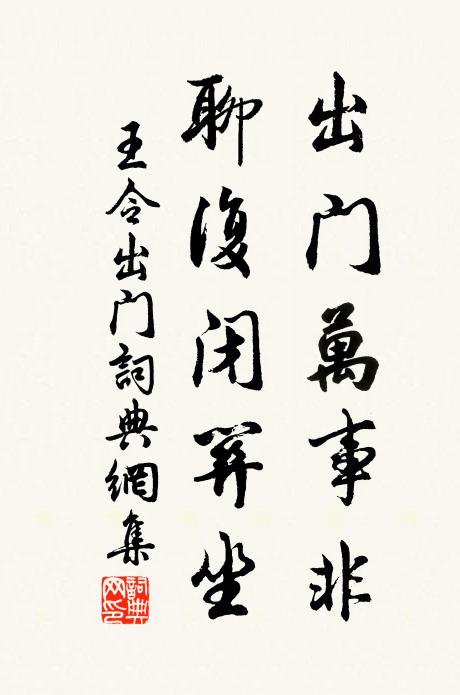 出門萬事非
聊復閉關坐
王令出門詞典網集
詞典网印